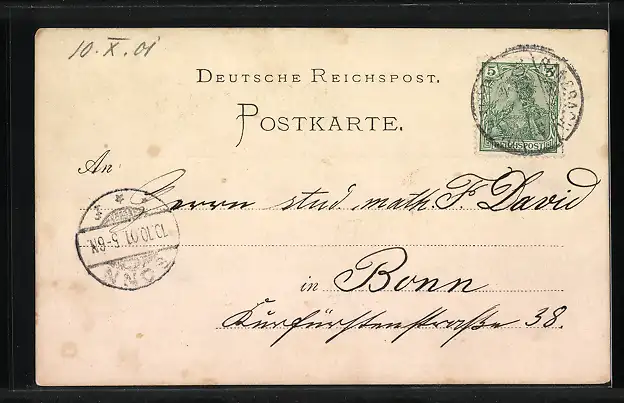 10. X. 01
DEUTSCHE REICHSPOST.
POSTKARTE.
5 5
REICHSPOST
An
Herrn stud math F. David
in Bonn
Kurfürstenstraße 38.
BONN
10.10.01 5-6N